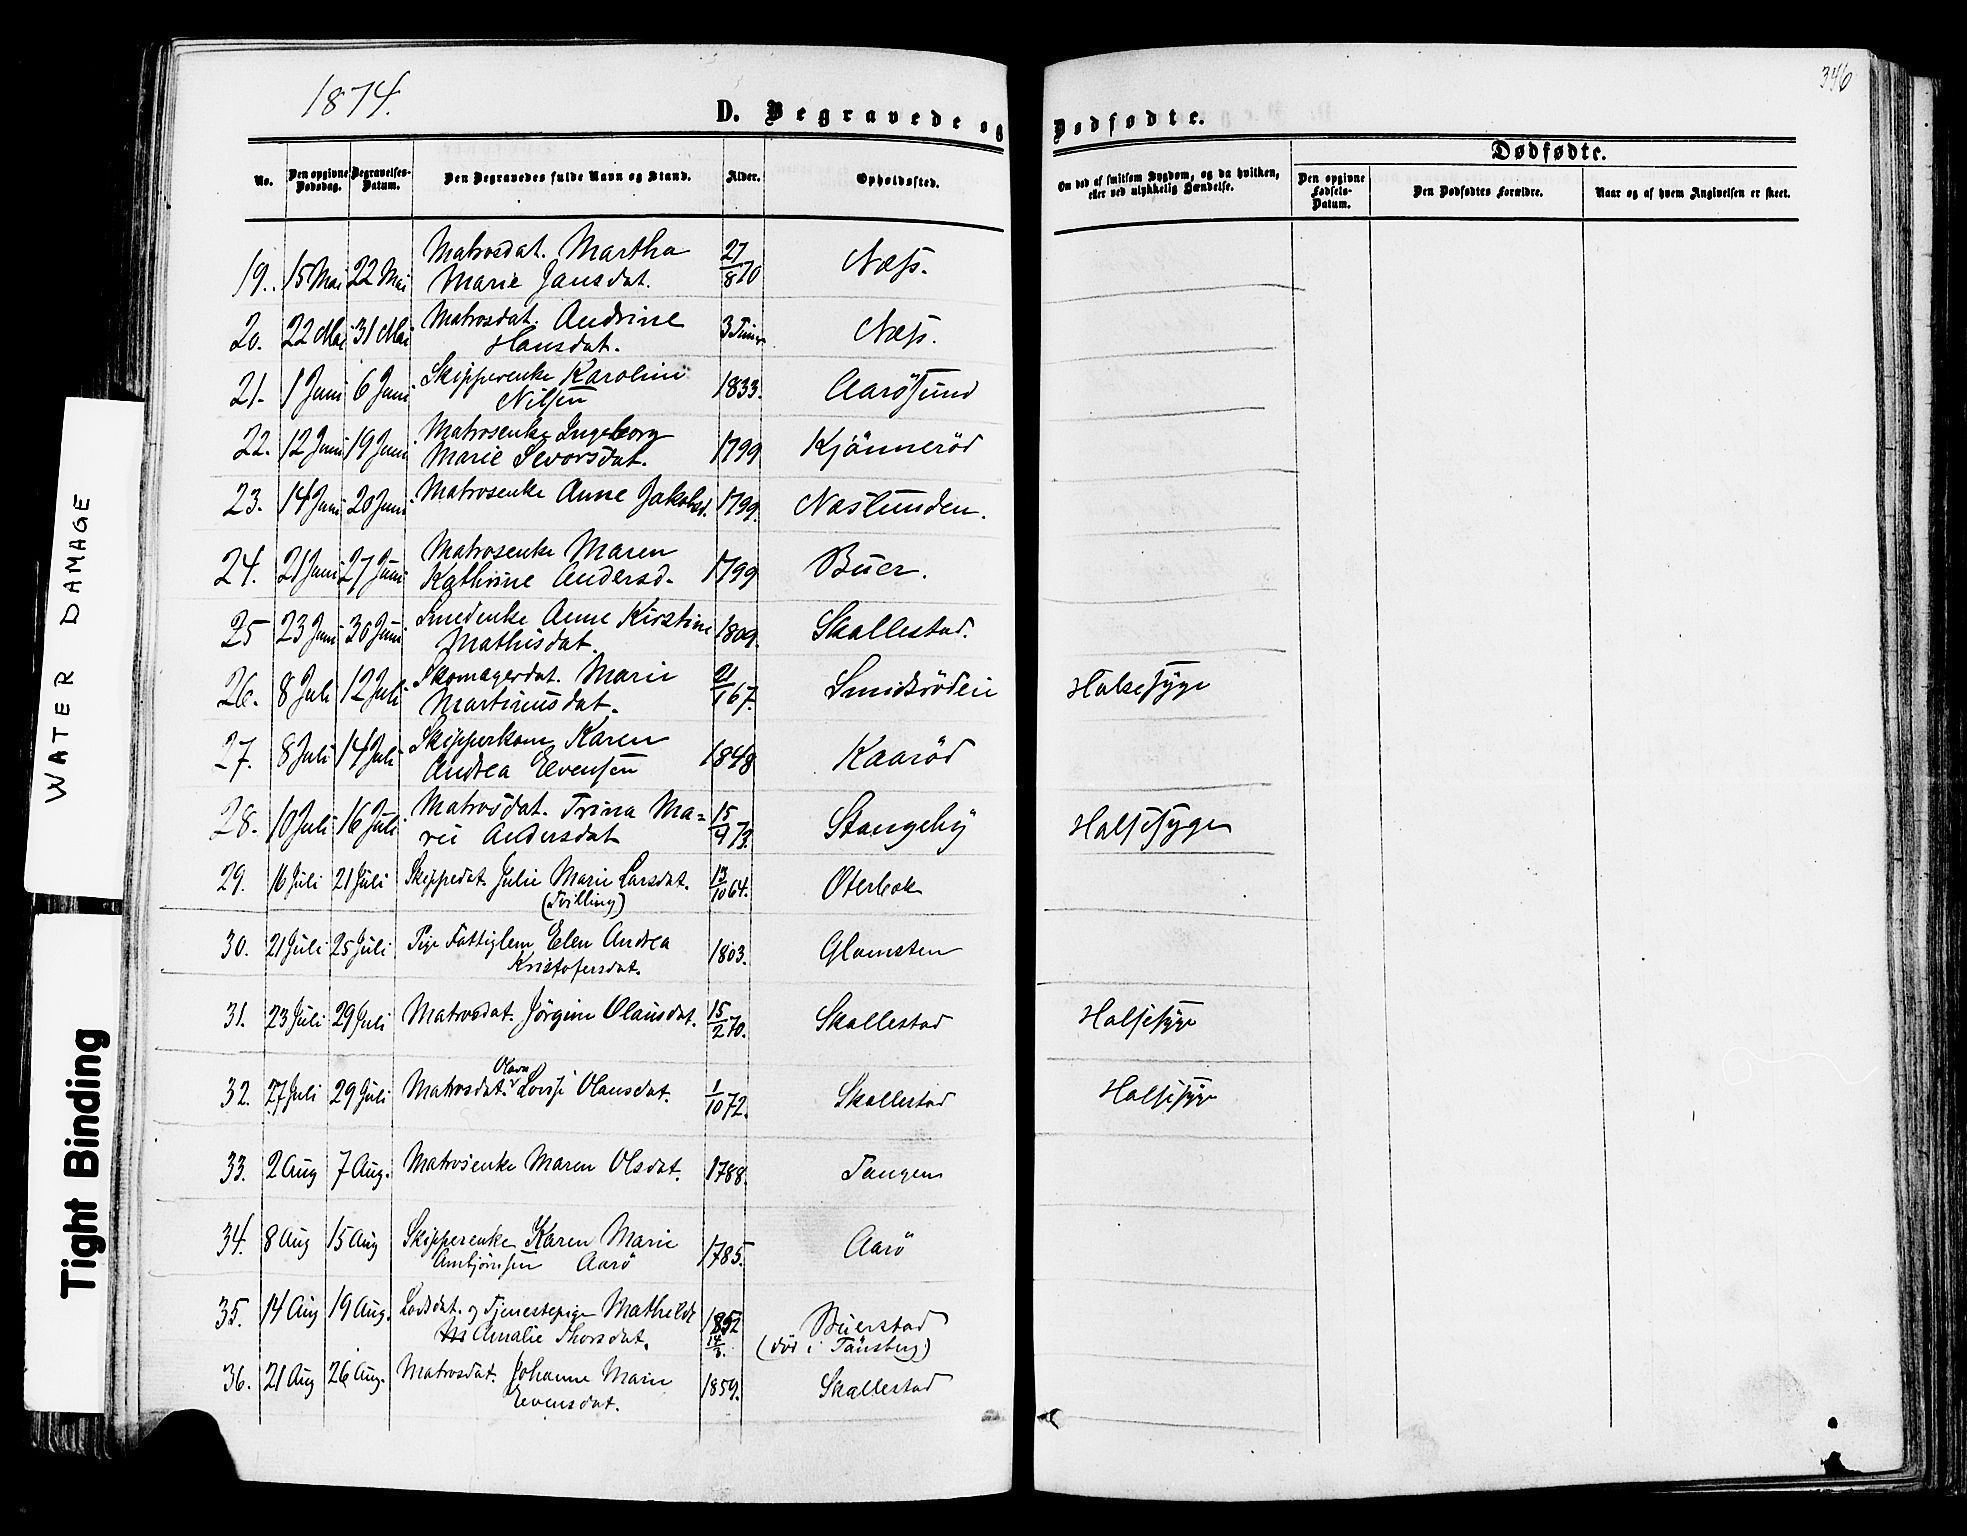 1874.
346
D. Begravede og Dødfødte.
No. Den opgivne Dødsdag. Begravelses-Datum. Den Begravedes fulde Navn og Stand. Alder. Opholdssted. Om død af smitsom Sygdom, og da hvilken, eller ved ulykkelig Hændelse.
Dødfødte.
Den opgivne Fødsels-Datum. Den Dødfødtes Forældre. Naar og af hvem Angivelsen er skeet.
19. 15 Mai 22 Mai Matrosdat. Martha 27/8 70 Næss.
Marie Jansdat.
20. 22 Mai 31 Mai Matrosdat. Andrine 3 Timer Næss.
Hansdat.
21. 1 Juni 6 Juni Skipperenke Karoline 1833. Aarösund
Nilsen
22. 12 Juni 19 Juni Matrosenke Ingeborg 1799 Kjönneröd
Marie Sivorsdat.
23. 14 Juni 20 Juni Matrosenke Anne Jakobsd. 1799. Naslunden.
24. 21 Juni 27 Juni Matrosenke Maren 1799 Buer.
Kathrine Andersd.
25 23 Juni 30 Juni Smedenke Anne Kirstine 1809. Skallestad.
Mathisdat.
26. 8 Juli 12 Juli Skomagerdat. Marie 21/1 67. Smidsröden Halsesyge
Martinusdat.
27. 8 Juli 14 Juli Skipperkone Karen 1848 Kaaröd
Andrea Evensen
28. 10 Juli 16 Juli Matrosdat. Trina Ma= 15/9 73. Stangeby Halsesyge
rie Andersdat
29. 16 Juli 21 Juli Skipperdat. Julie Marie Larsdat. 13/10 64. Oterbek
(Tvilling)
30. 21 Juli 25 Juli Pige Fattiglem Elen Andrea 1803. Glomsten
Kristofersdat.
31. 23 Juli 29 Juli Matrosdat. Jörgine Olausdat. 15/2 70. Skallestad Halsesyge
Olava
32. 27 Juli 29 Juli Matrosdat. Lovise Olausdat. 1/10 72. Skallestad Halsesyge
33. 2 Aug 7 Aug. Matrosenke Maren Olsdat. 1788. Tangen
34. 8 Aug 15 Aug Skipperenke Karen Marie 1785. Aarö
Arnbjörnsen Aarö
35. 14 Aug 19 Aug. Lodsdat. og Tjenestepige Mathilde 1852 Buerstad
Amalie Thorsdat. 14/8. (död i Tönsberg)
36. 21 Aug 26 Aug. Matrosdat. Johanne Marie 1859. Skallestad
Evensdat.
WATER DAMAGE
Tight Binding